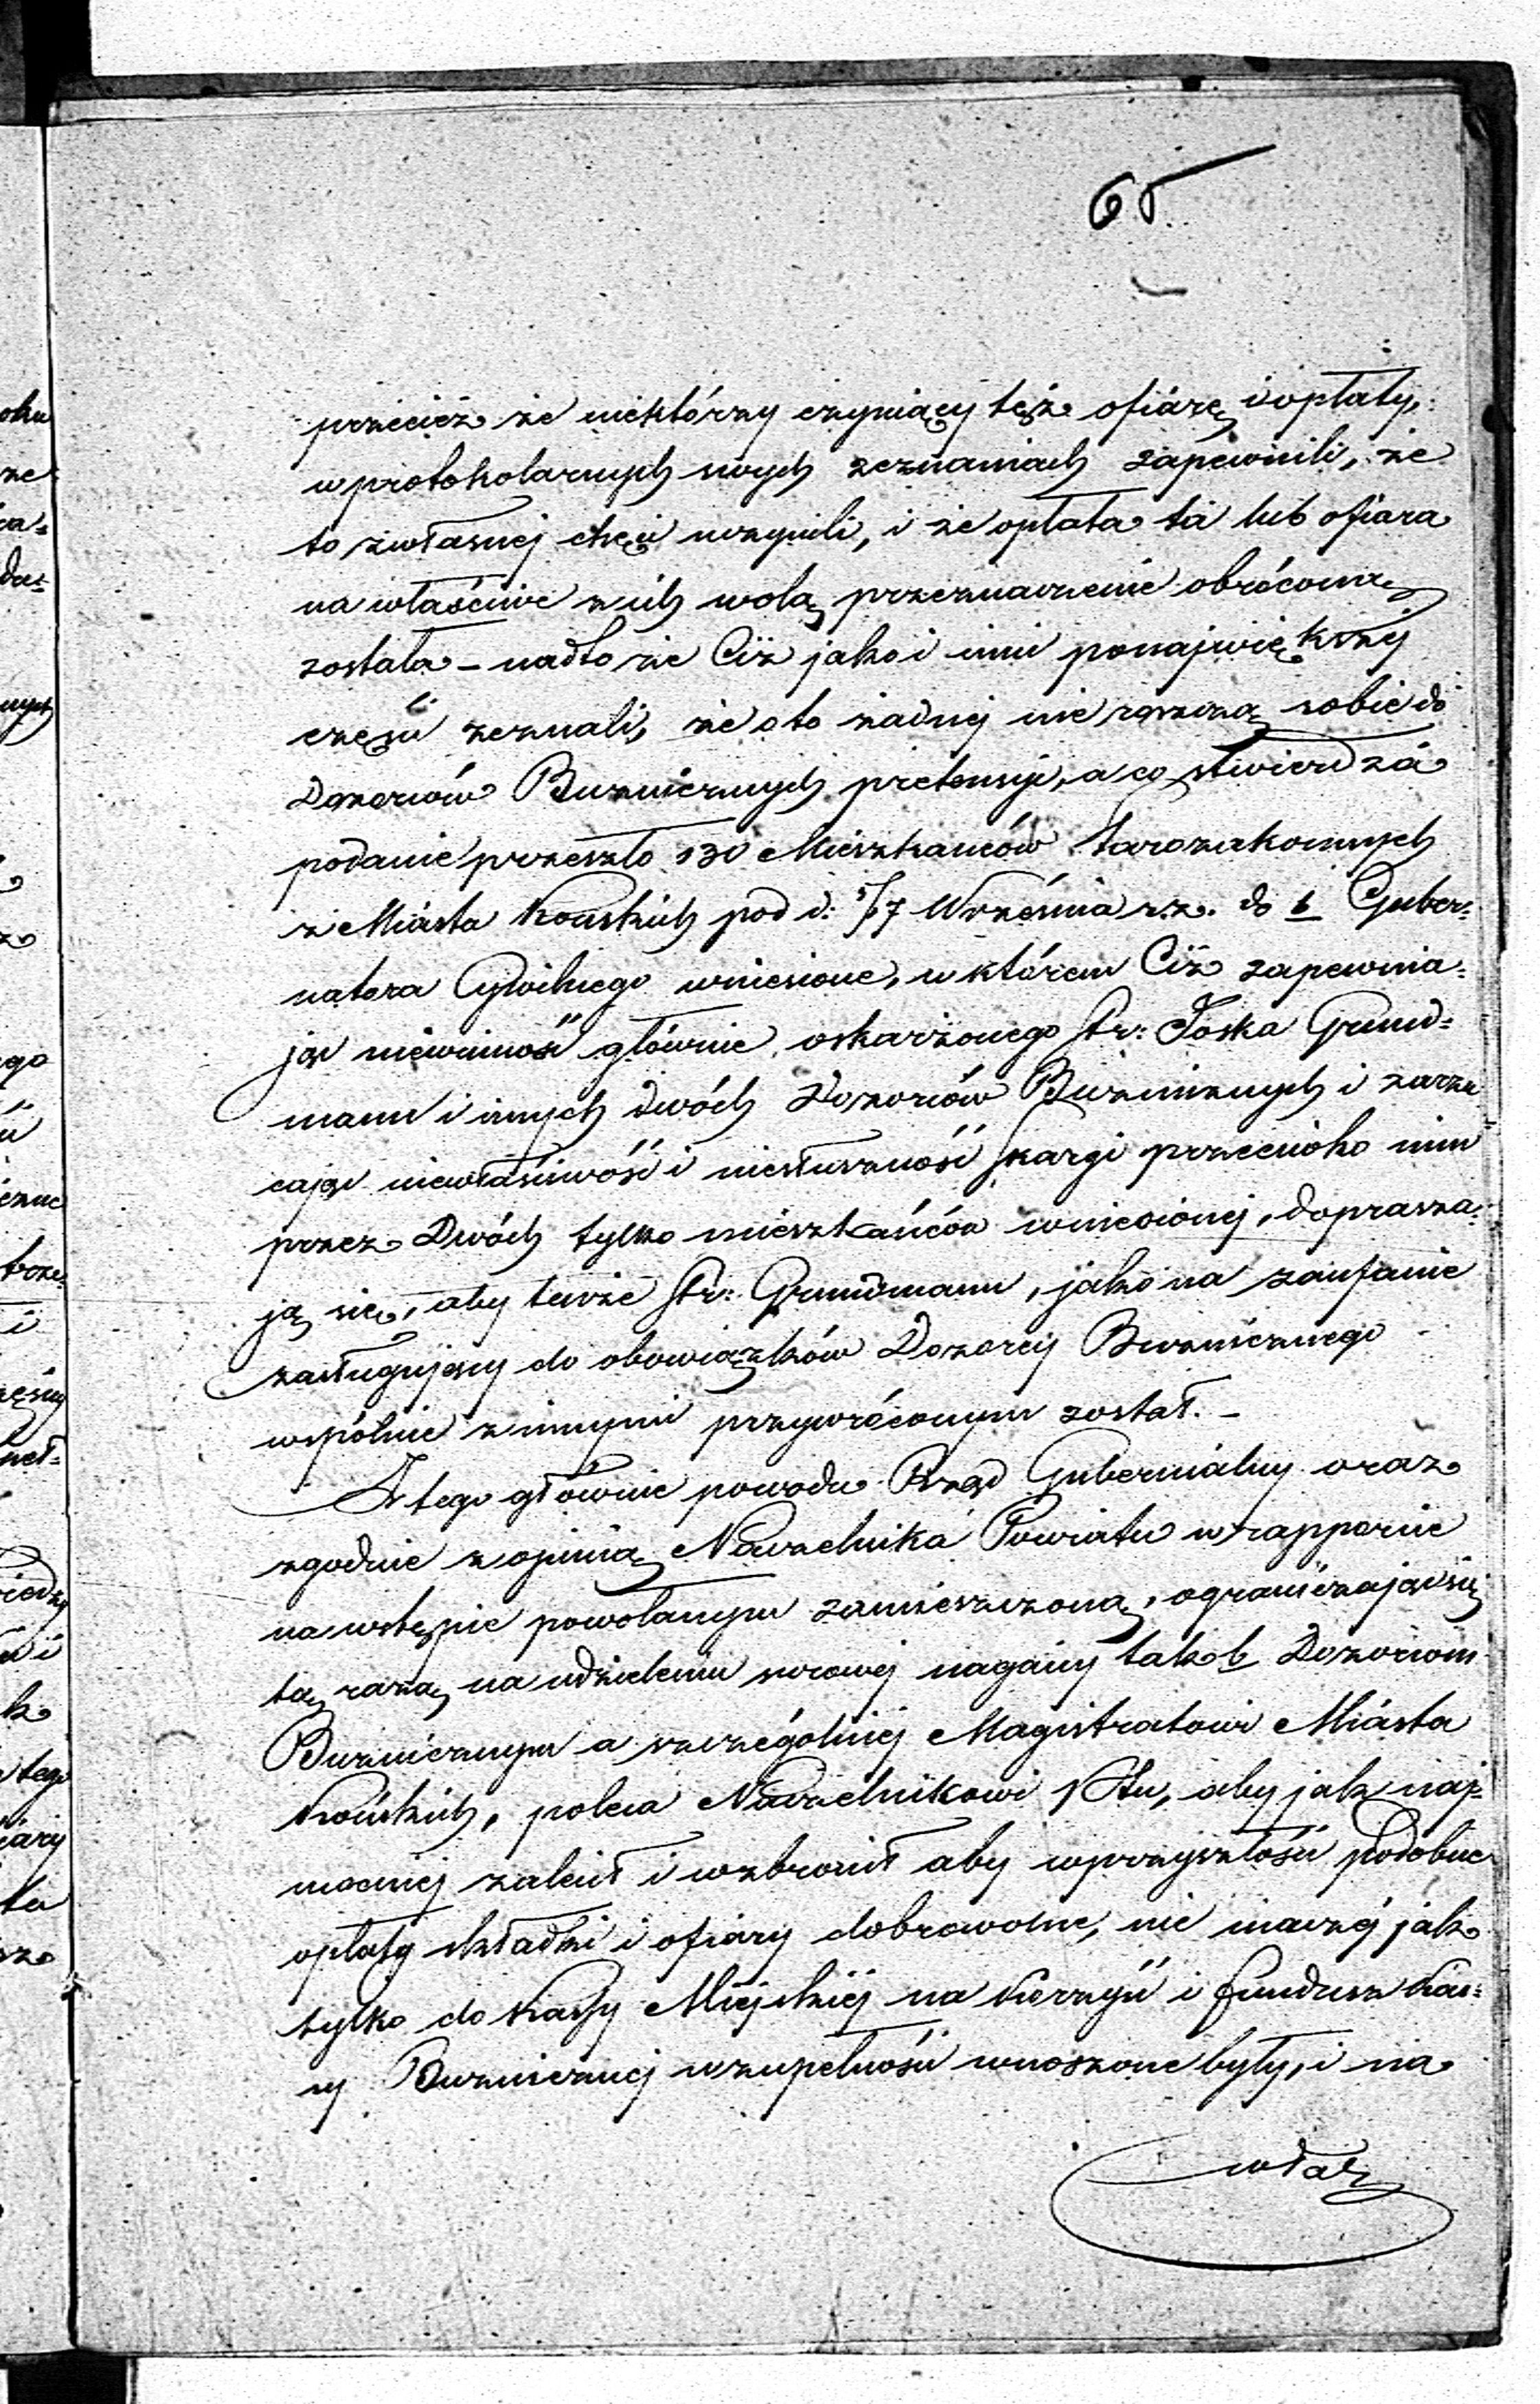 65
przecież że niektórzy czyniący tęż ofiarę i opłaty,
w protokolarnych swych zeznaniach zapewnili, że
to z własnej chęci uczynili, i że opłata ta lub ofiara
na właściwe z ich wolą przeznaczenie obróconą
została – nadto że Ciż jako i inni po największej
części zeznali, że o to żadnej nie roszczą sobie do
Dozorców Bużnicznych pretensyi, a co stwierdza
podanie przeszło 130 Mieszkańców Starozakonnych
z Miasta Końskich pod d: 5/17 Września r.z. do Guber=
natora Cywilnego wniesione, w którem Ciż zapewnia=
jąc niewinność głównie oskarżonego St: Joska Grund=
mann i innych dwóch Dozorców Bużnicznych i zarzu
cając niewłaściwość i niesłuszność skargi przeciwko nim
przez Dwóch tylko mieszkańców wniesionej, doprasza=
ją się, aby tenże St: Grundmann, jako na zaufanie
zasługujący do obowiązków Dozorcy Bużnicznego
wspólnie z innymi przywróconym został. –
Z tego głównie powodu Rząd Gubernialny oraz
zgodnie z opinią Naczelnika Powiatu w rapporcie
na wstępie powołanym zamieszczoną, ograniczając się
tą razą na udzieleniu surowej nagany tak b. Dozorcom
Bużnicznym a szczególniej Magistratowi Miasta
Końskich, poleca Naczelnikowi Ptu, aby jak naj=
mocniej zalecił i wzbronił aby w przyszłości podobne
opłaty składki i ofiary dobrowolne, nie inaczej jak
tylko do Kassy Miejskiej na korzyść i fundusz Kas=
sy Bużnicznej w zupełności wnoszone były, i na